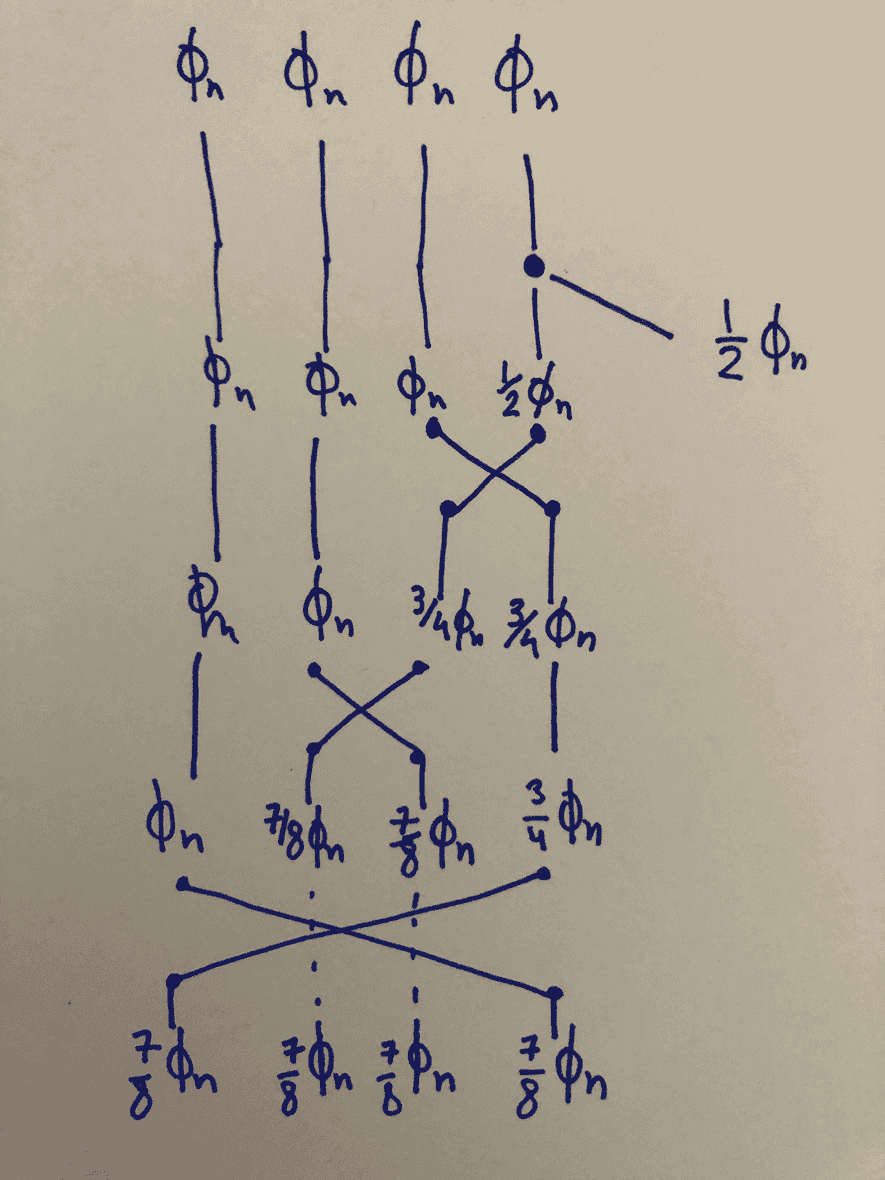 ϕₙ ϕₙ ϕₙ ϕₙ
1/2 ϕₙ
ϕₙ ϕₙ ϕₙ 1/2 ϕₙ
ϕₙ ϕₙ 3/4 ϕₙ 3/4 ϕₙ
ϕₙ 7/8 ϕₙ 7/8 ϕₙ 3/4 ϕₙ
7/8 ϕₙ 7/8 ϕₙ 7/8 ϕₙ 7/8 ϕₙ